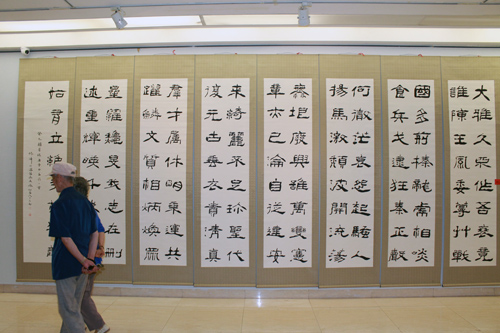 大雅久不作吾衰竟
誰陳王風委蔓草戰
國多荊榛龍虎相啖
食兵戈逮狂秦正聲
何微茫哀怨起騷人
揚馬激頹波開流蕩
無垠廢興雖萬變憲
章亦已淪自從建安
來綺麗不足珍聖代
復元古垂衣貴清真
群才屬休明乘運共
躍鱗文質相炳煥眾
星羅穐旻我志在刪
述垂輝映千
如有立絕